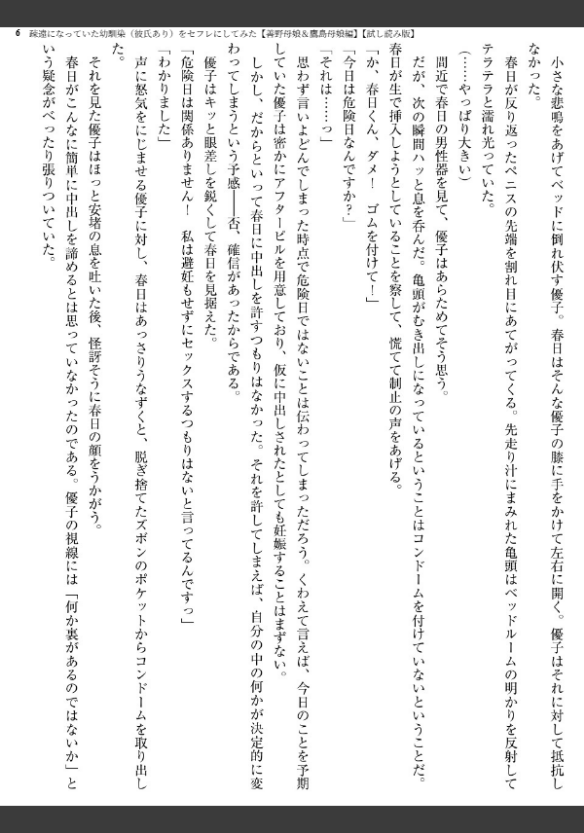 6 疎遠になっていた幼馴染（彼氏あり）をセフレにしてみた【善野母娘＆鷹島母娘編】【試し読み版】
　小さな悲鳴をあげてベッドに倒れ伏す優子。春日はそんな優子の膝に手をかけて左右に開く。優子はそれに対して抵抗し
なかった。
　春日が反り返ったペニスの先端を割れ目にあてがってくる。先走り汁にまみれた亀頭はベッドルームの明かりを反射して
テラテラと濡れ光っていた。
（……やっぱり大きい）
　間近で春日の男性器を見て、優子はあらためてそう思う。
　だが、次の瞬間ハッと息を呑んだ。亀頭がむき出しになっているということはコンドームを付けていないということだ。
春日が生で挿入しようとしていることを察して、慌てて制止の声をあげる。
「か、春日くん、ダメ！　ゴムを付けて！」
「今日は危険日なんですか？」
「それは……っ」
　思わず言いよどんでしまった時点で危険日ではないことは伝わってしまっただろう。くわえて言えば、今日のことを予期
していた優子は密かにアフターピルを用意しており、仮に中出しされたとしても妊娠することはまずない。
　しかし、だからといって春日に中出しを許すつもりはなかった。それを許してしまえば、自分の中の何かが決定的に変
わってしまうという予感――否、確信があったからである。
　優子はキッと眼差しを鋭くして春日を見据えた。
「危険日は関係ありません！　私は避妊もせずにセックスするつもりはないと言ってるんですっ」
「わかりました」
　声に怒気をにじませる優子に対し、春日はあっさりうなずくと、脱ぎ捨てたズボンのポケットからコンドームを取り出し
た。
　それを見た優子はほっと安堵の息を吐いた後、怪訝そうに春日の顔をうかがう。
　春日がこんなに簡単に中出しを諦めるとは思っていなかったのである。優子の視線には「何か裏があるのではないか」と
いう疑念がべったり張りついていた。